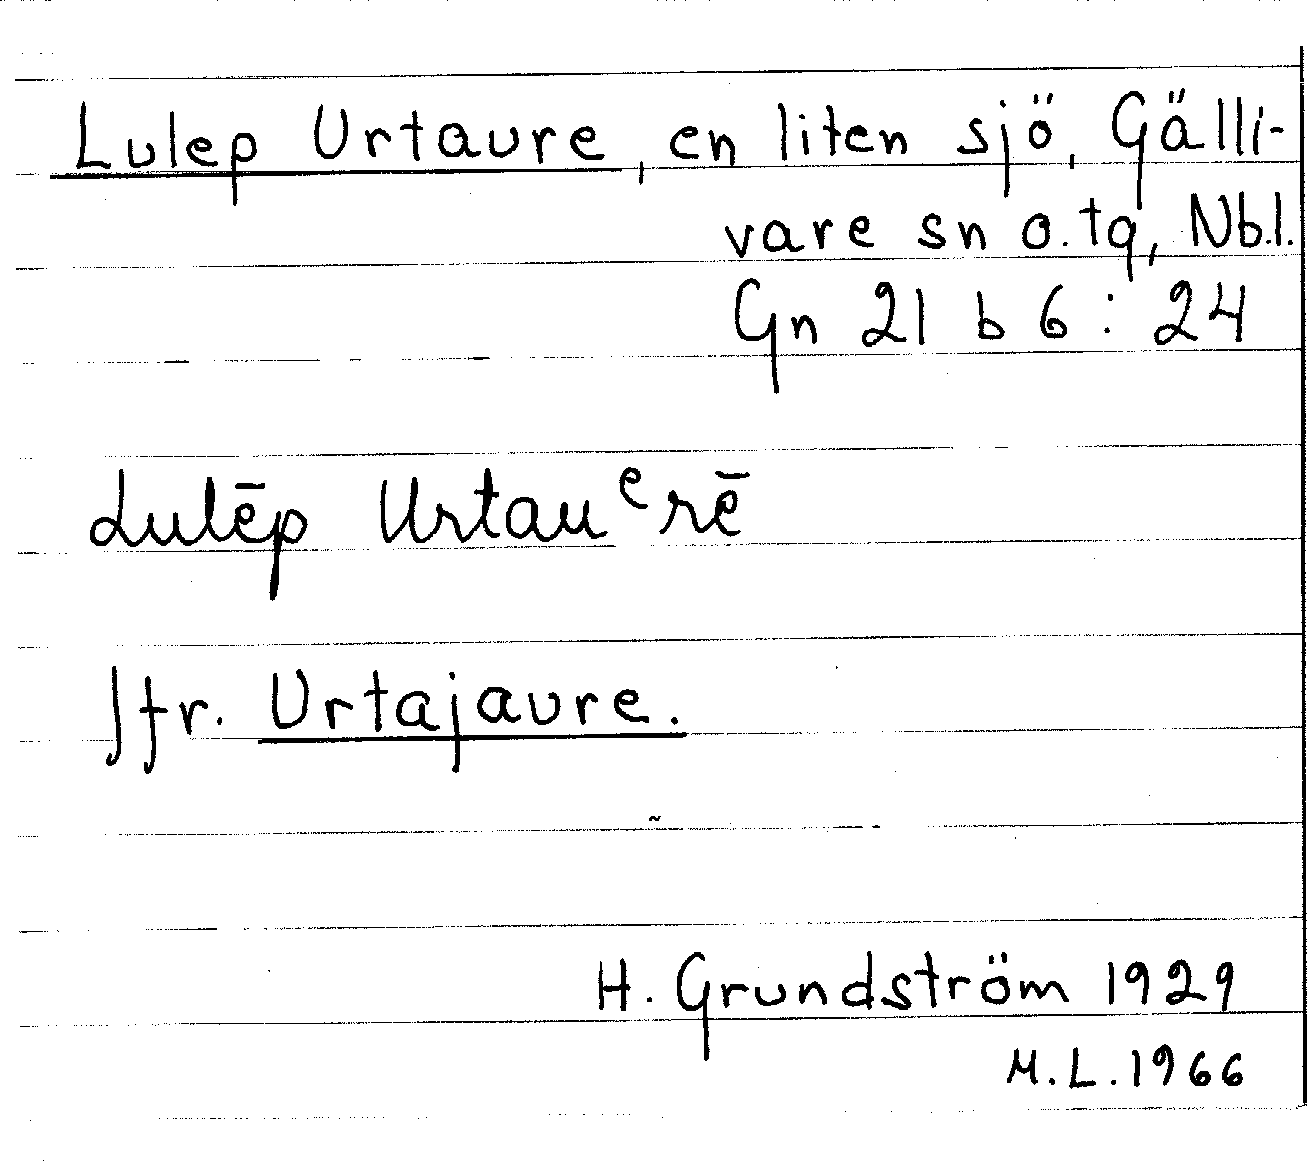 Lulep Urtaure, en liten sjö, Gälli-
vare sn o. tg, Nb.l.
Gn 21 b 6 : 24
Lulēp Urtauᵉrē
Jfr. Urtajaure.
H. Grundström 1929
M.L. 1966